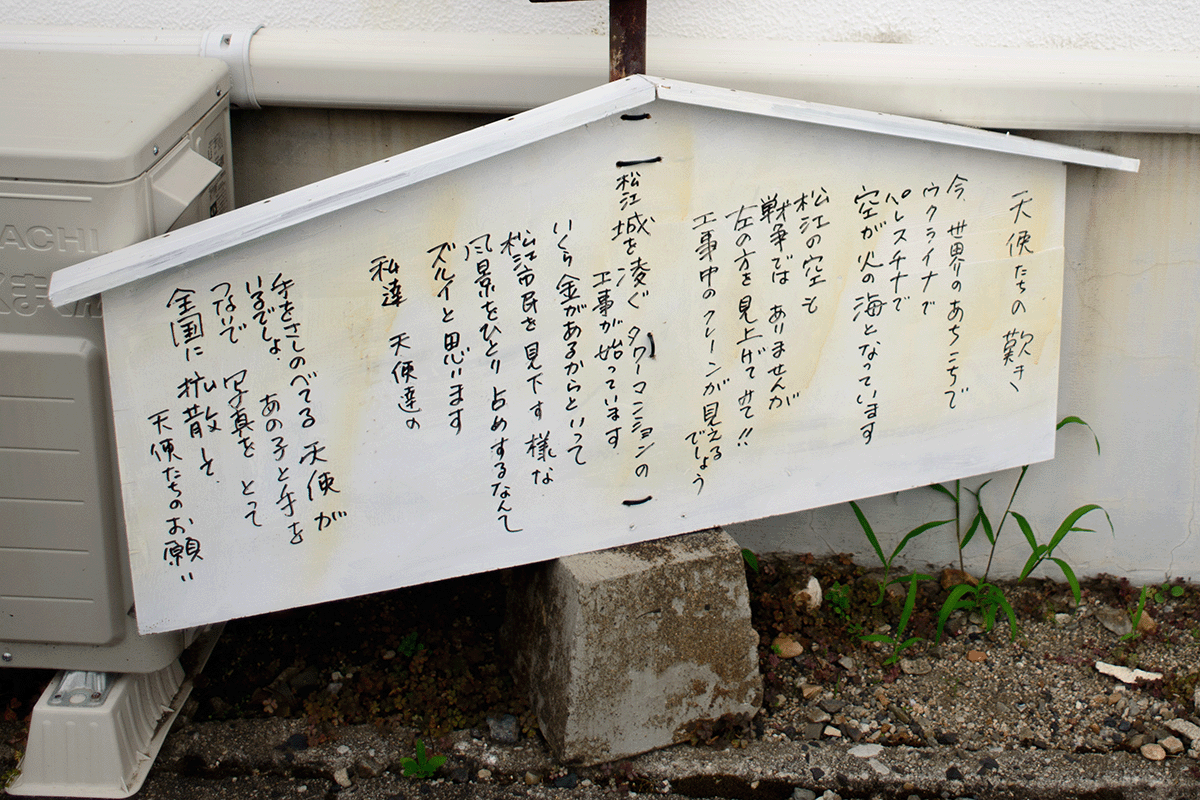 天使たちの歎き
今、世界のあちこちで
ウクライナで
パレスチナで
空が火の海となっています
松江の空も
戦争では ありませんが
左の方を見上げてみて!!
工事中のクレーンが見える
でしょう
松江城を凌ぐ タワーマンションの
工事が始っています
いくら金があるからといって
松江市民を見下す様な
風景をひとり占めするなんて
ズルイと思います
私達 天使達の
手をさしのべてる天使が
いるでしょ、あの子と手を
つないで 写真を とって
全国に拡散してネ
天使たちのお願い
ACHI
くま